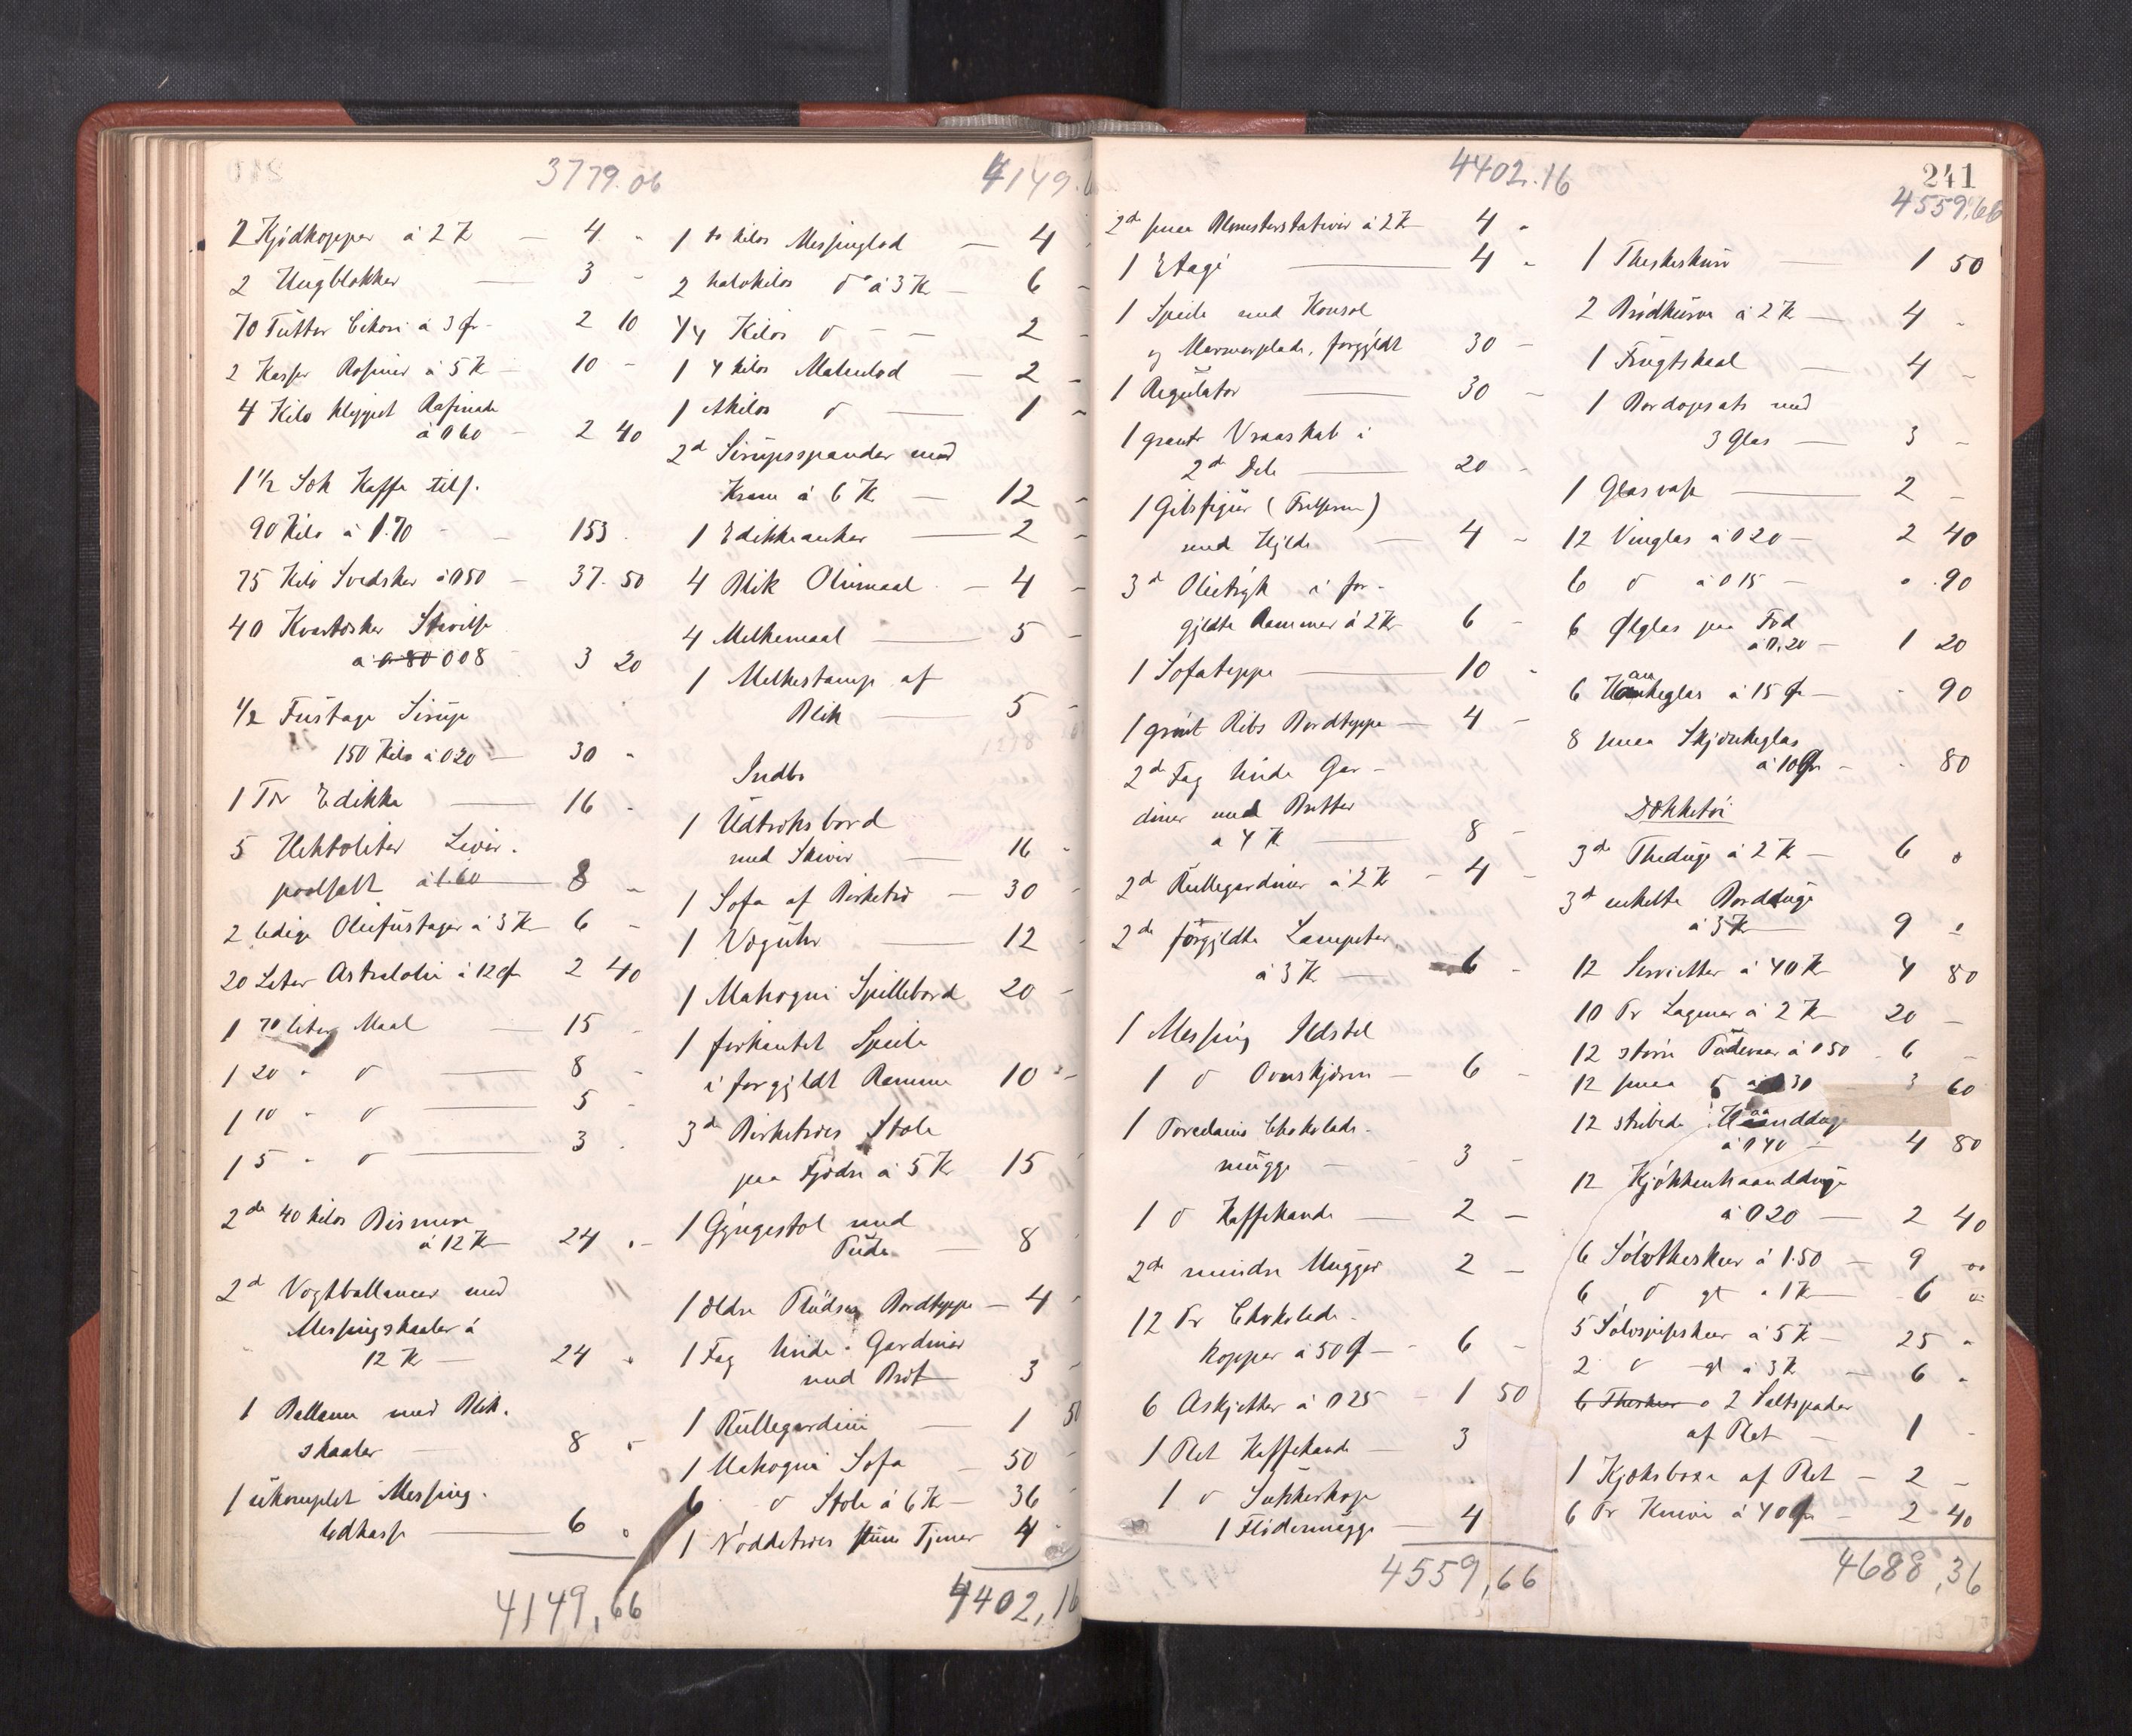 3779.06
2 Kjødkopper à 2 K — 4 -
2 Hugblokker — 3 -
70 Tutter Cikori à 3 Ør - 2 10
2 Kasser Rosiner à 5 K — 10 -
4 Kilo klippet Rafinade
à 0 60 - 2 40
1 1/2 Sæk Kaffe tils.
90 Kilo à 1.70 - 153 .
75 Kilo Svedsker à 0 50 — 37.50
40 Kvartæsker Stivelse
à 0 80 0 08 - 3 20
1/2 Fustage Sirup
150 Kilo à 0 20 — 30 -
1 Tør Edikke — 16 -
5 Hektoliter Liver-
poolsalt à 1.60 — 8 -
2 ledige Oliefustager à 3 K — 6 -
20 Liter Astralolie à 12 Ør 2 40
1 70 liter Maal — 15 -
1 20 " d — 8 -
1 10 - d — 5 -
1 5 - d — 3 -
2de 40 kilos Bismere
à 12 K — 24 -
2d Vægtballancer med
Messingskaaler à
12 K — 24 -
1 Ballance med Blik-
skaaler — 8 -
1 ukomplet Messing-
lodkasse — 6 -
4149,66
4149.
1 to kilos Messinglod — 4
2 halvkilos do à 3 K — 6 -
1/4 Kilos d — 2 -
1 4 kilos Malmlod — 2 -
1 kilos d — 1 -
2d Sirupsspander med
Krane à 6 K — 12 -
1 Edikkeanker — 2 -
4 Blik Oliemaal — 4 -
4 Melkemaal — 5 -
1 Melkestamp af
Blik — 5 -
Indbo
1 Udtræksbord
med Skiver — 16 -
1 Sofa af Birketræ — 30
1 Væguhr — 12
1 Mahogni Spillebord 20 -
1 firkantet Speile
i forgyldt Ramme 10 -
3de Birketræes Stole
paa Fjædre à 5 K 15
1 Gyngestol med
Pude — 8
1 ældre Pludses Bordteppe — 4
1 Fag hvide Gardiner
med Bret — 3
1 Rullegardin — 1 50
1 Mahogni Sofa — 50
6 d Stole à 6 K — 36
1 Nøddetræes stum Tjener 4
4402,16
4402.16
2de smaa Blomsterstativer à 2 K 4 -
1 Etage — 4 -
1 Speile med Konsol
og Marmorplade, forgyldt 30 -
1 Regulator — 30 -
1 grønt Vraaskab i
2de Dele — 20 -
1 Gibsfigur (Frelseren)
med Hylde — 4 -
3d Olietryk i for-
gyldte Rammer à 2 K 6 -
1 Sofateppe — 10 -
1 grønt Ribs Bordteppe — 4 -
2de Fag hvide Gar-
diner med Bretter
à 4 K — 8 -
2de Rullegardiner à 2 K — 4 -
2de forgyldte Lampetter
à 3 K — 6 -
1 Messing Ildsted
1 d Ovnskjærm — 6 -
1 Porcelains Chokolade-
mugge — 3 -
1 d Kaffekande — 2 -
2de mindre Mugger 2 -
12 Pr Chokolade-
kopper à 50 Ø — 6 -
6 Askjetter à 0 25 - 1 50
1 Plet Kaffekande — 3
1 d Sukkerkop
1 Flødemugge — 4
4559,66
241
4559,66
1 Theskekurv — 1 50
2 Brødkurve à 2 K — 4 -
1 Frugtskaal — 4 -
1 Bordopsats med
3 Glas — 3 -
1 Glasvase — 2 -
12 Vinglas à 0 20 — 2 40
6 d à 0 15 - " 90
6 Ølglas paa Fod
à 0,20 — 1 20
6 Haankeglas à 15 Ør — - 90
8 smaa Skjænkeglas
à 10 Ør - - 80
Dækketøi
3de Theduge à 2 K — 6 -
3d enkelte Bordduge
à 3 K — 9 -
12 Servietter à 40 K 4 80
10 Pr Lagener à 2 K 20 -
12 store Pudevaar à 0 50 - 6 -
12 smaa d à 0 30 3 60
12 stribede Haandduge
à 0 40 — 4 80
12 Kjøkkenhaandduge
à 0 20 — 2 40
6 Sølvtheskeer à 1.50 — 9 -
6 d gl à 1 K — 6 -
5 Sølvspiseskeer à 5 K — 25 -
2 d gl à 3 K — 6 -
6 Theskeer o 2 Saltspader
af Plet — 1 -
1 Kjæksboxe af Plet — 2 -
6 Pr Knive à 40 Ør — 2 40
4688,36